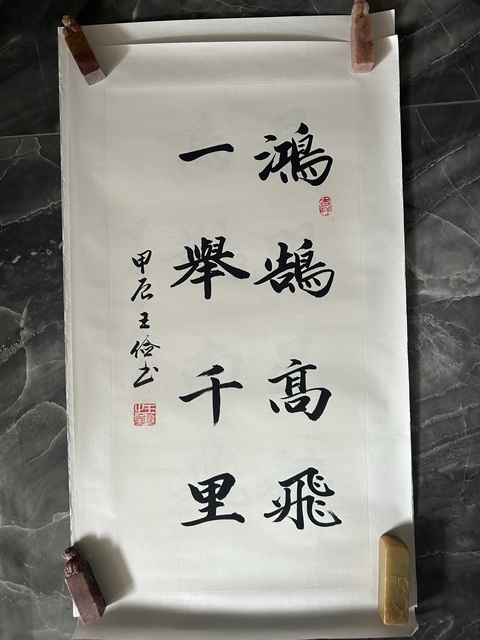 鴻鵠高飛
一舉千里
甲辰王俭书